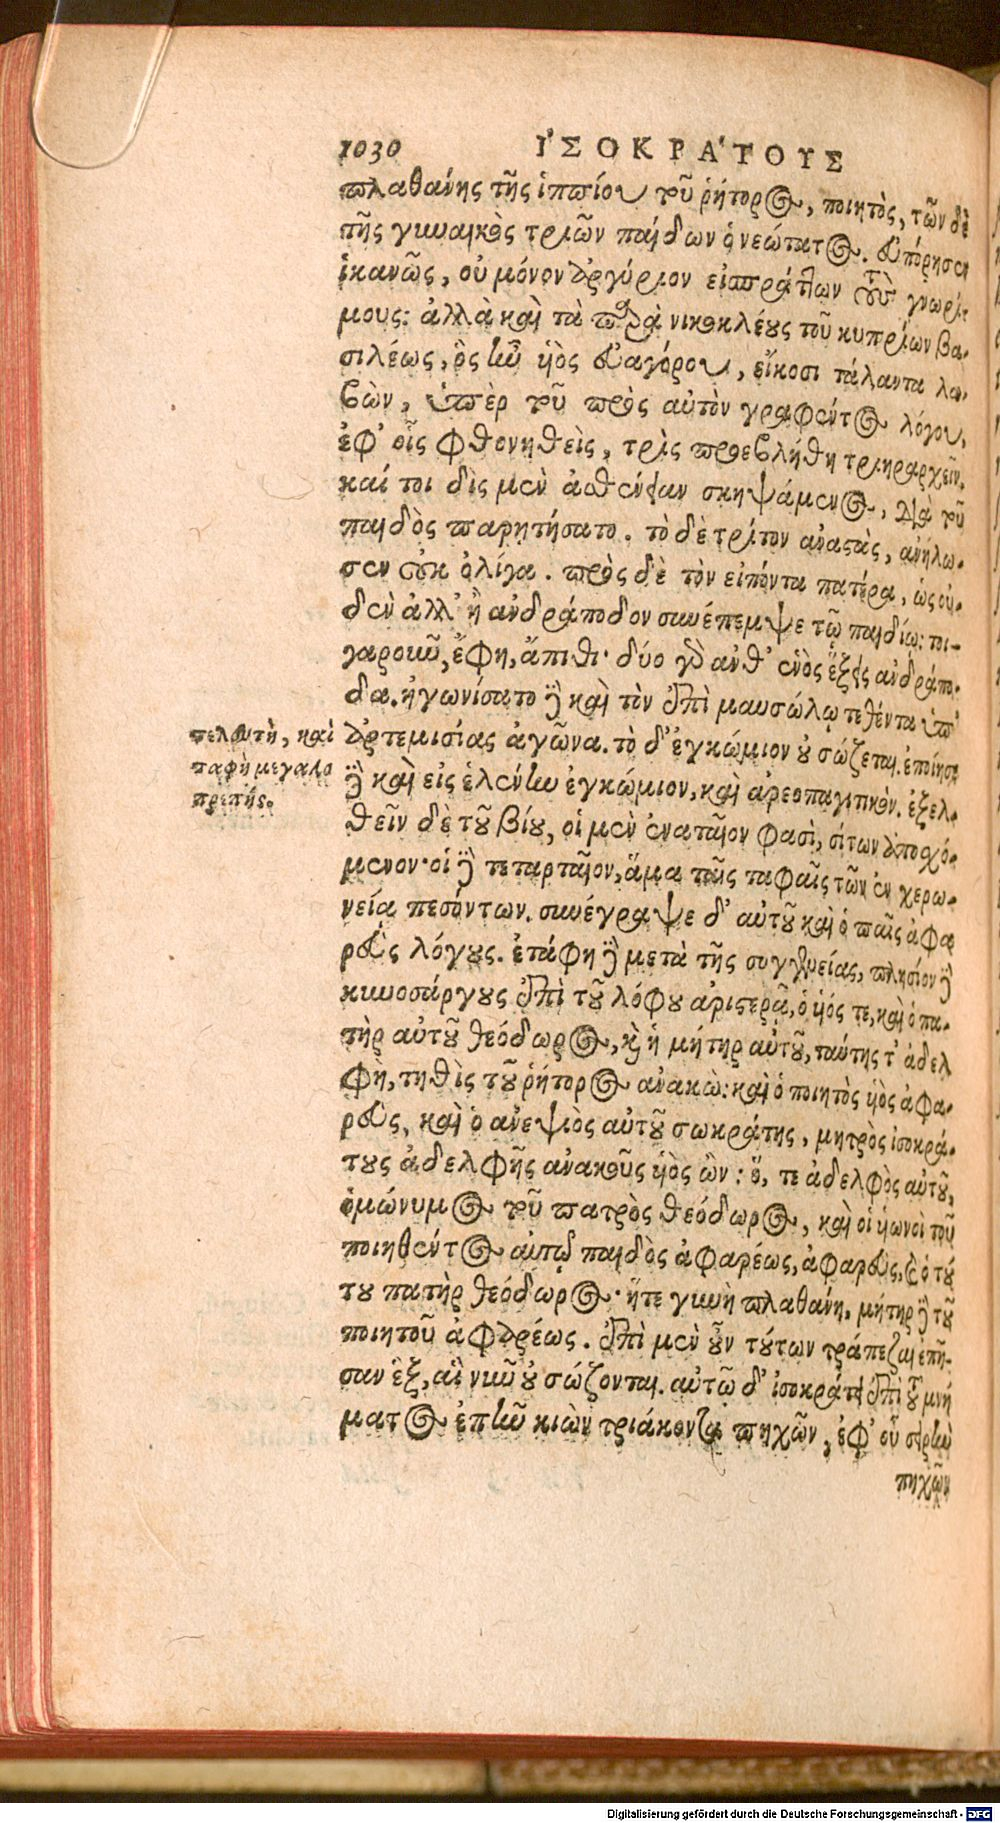 1030 ἸΣΟΚΡΑ'ΤΟΥΣ
πλαθάνης τῆς ἱππίου τοῦ ῥήτορος, ποιητὸς, τῶν δὲ
τῆς γυναικὸς τριῶν παίδων ὁ νεώτατος. εὐπόρησεν
ἱκανῶς, οὐ μόνον ἀργύριον εἰσπράττων τοὺς γνωρί-
μους: ἀλλὰ καὶ τὰ παρὰ νικοκλέους τοῦ κυπρίων βα-
σιλέως, ὃς ἦν ὑὸς εὐαγόρου, εἴκοσι τάλαντα λα-
βὼν, ὑπὲρ τοῦ πρὸς αὐτὸν γραφέντος λόγου,
ἐφ' οἷς φθονηθεὶς, τρὶς προεβλήθη τριηραρχεῖν.
καί τοι δὶς μὲν ἀσθένειαν σκηψάμενος, διὰ τοῦ
παιδὸς παρῃτήσατο. τὸ δὲ τρίτον ἀναστὰς, ἀνήλω-
σεν οὐκ ὀλίγα. πρὸς δὲ τὸν εἰπόντα πατέρα, ὡς οὐ-
δὲν ἀλλ' ἢ ἀνδράποδον συνέπεμψε τῷ παιδίῳ: τοι-
γαροῦν, ἔφη, ἄπιθι· δύο γὰρ ἀνθ' ἑνὸς ἕξεις ἀνδράπο-
δα. ἠγωνίσατο δὲ καὶ τὸν ἐπὶ μαυσώλῳ τεθέντα ὑπ'
ἀρτεμισίας ἀγῶνα. τὸ δ' ἐγκώμιον οὐ σώζεται. ἐποίησε
δὲ καὶ εἰς ἑλένην ἐγκώμιον, καὶ ἀρεοπαγιτικόν. ἐξελ-
θεῖν δὲ τοῦ βίου, οἱ μὲν ἐναταῖον φασὶ, σίτων ἀποχό-
μενον· οἱ δὲ τεταρταῖον, ἅμα ταῖς ταφαῖς τῶν ἐν χερω-
νείᾳ πεσόντων. συνέγραψε δ' αὐτοῦ καὶ ὁ παῖς ἀφα
ρεὺς λόγους. ἐτάφη δὲ μετὰ τῆς συγγενείας, πλησίον δὲ
κυνοσάργους ἐπὶ τοῦ λόφου ἀριστερᾷ, ὁ ὑός τε, καὶ ὁ πα-
τὴρ αὐτοῦ θεόδωρος, καὶ ἡ μήτηρ αὐτοῦ, ταύτης τ' ἀδελ
φὴ, τηθὶς τοῦ ῥήτορος ἀνακὼ: καὶ ὁ ποιητὸς ὑὸς ἀφα-
ρεὺς, καὶ ὁ ἀνεψιὸς αὐτοῦ σωκράτης, μητρὸς ἰσοκρά-
τους ἀδελφῆς ἀνακοῦς ὑὸς ὢν: ὅ, τε ἀδελφὸς αὐτοῦ,
ὁμώνυμος τοῦ πατρὸς θεόδωρος, καὶ οἱ ὑωνοὶ τοῦ
ποιηθέντος αὐτῷ παιδὸς ἀφαρέως, ἀφαρεὺς, καὶ ὁ τού
του πατὴρ θεόδωρος· ἥτε γυνὴ πλαθάνη, μήτηρ δὲ τοῦ
ποιητοῦ ἀφαρέως. ἐπὶ μὲν οὖν τούτων τράπεζαι ἐπῆ-
σαν ἓξ, αἳ νῦν οὐ σώζονται. αὐτῷ δ' ἰσοκράτει ἐπὶ τοῦ μνή
ματος ἐπῆν κιὼν τριάκοντα πηχῶν, ἐφ' οὗ σειρὴν
πηχῶν
τελευτὴ, καὶ
ταφὴ μεγαλο
πρεπής.
Digitalisierung gefördert durch die Deutsche Forschungsgemeinschaft - DFG